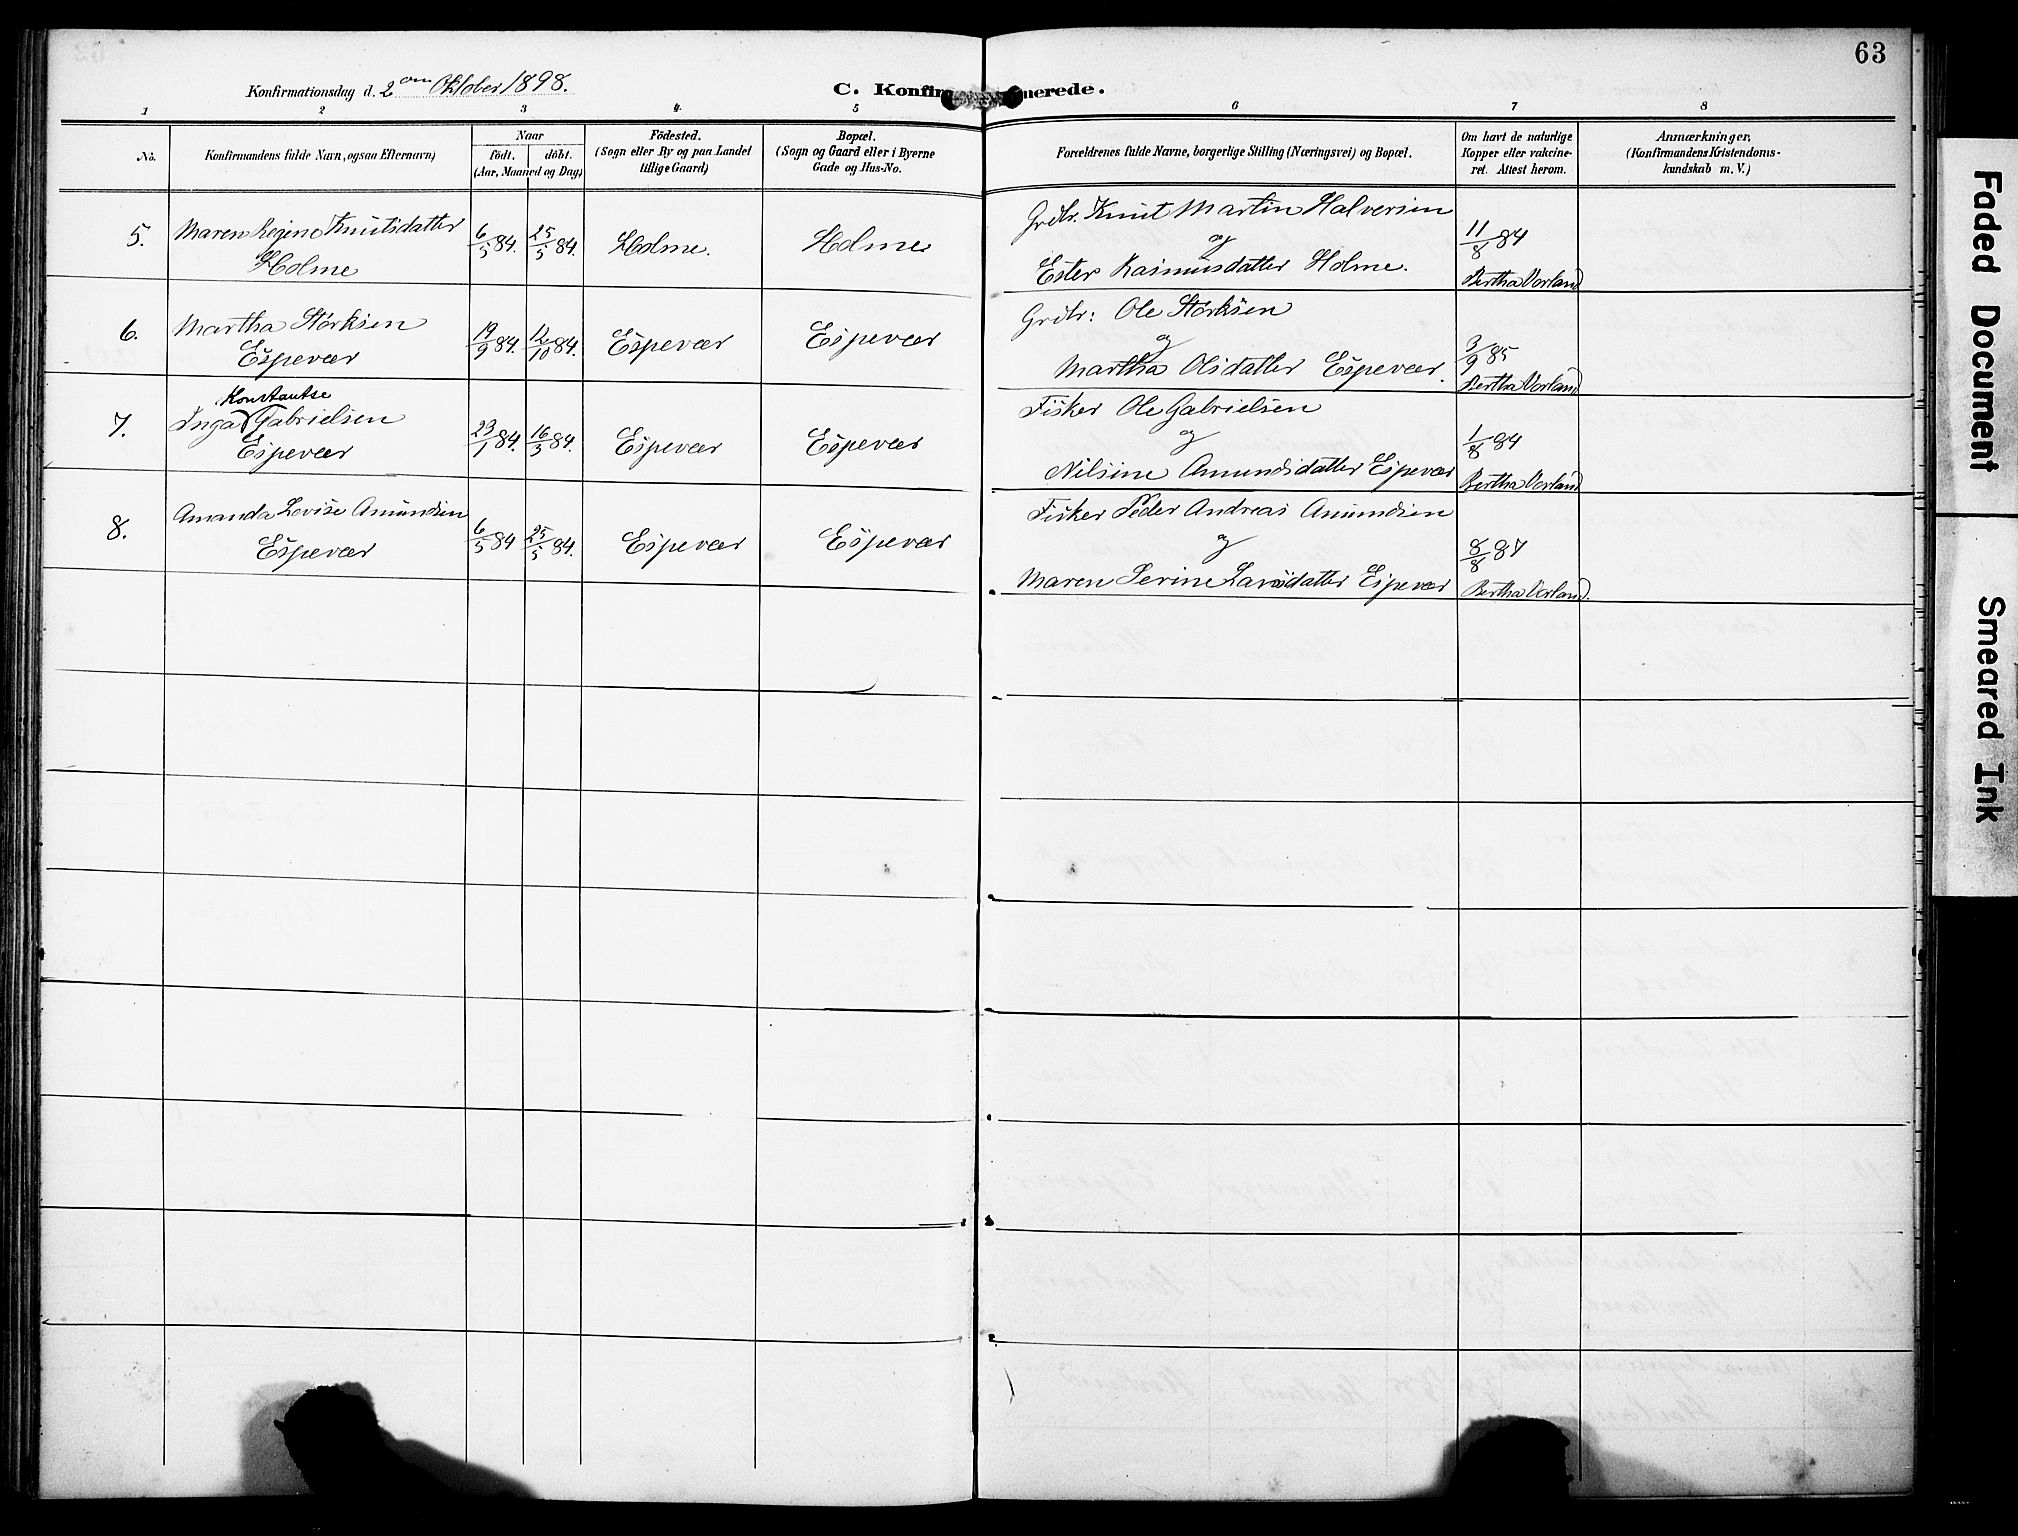 63
Konfirmationsdag d. 2den Oktober 1898.
C. Konfir merede.
1 2 3 4 5 6 7 8
No.
Konfirmandens fulde Navn, ogsaa Efternavn)
Naar
födt. döbt.
(Aar, Maaned og Dag)
Födested.
(Sogn eller By og paa Landet
tillige Gaard)
Bopæl.
(Sogn og Gaard eller i Byerne
Gade og Hus-No.
Forældrenes fulde Navne, borgerlige Stilling (Næringsvei) og Bopæl.
Om havt de naturlige
Kopper eller vakcine-
ret. Attest herom.
Anmærkninger.
(Konfirmandens Kristendoms-
kundskab m. V.)
5. Maren Regine Knutsdatter
Holme
6/5 84. 25/5 84. Holme. Holme
Grdbr. Knut Martin Halversen
og
Ester Rasmusdatter Holme.
11/8 84
Bertha Vorland
6. Martha Størksen
Espevær
19/9 84. 12/10 84. Espevær Espevær
Grdbr: Ole Størksen
og
Martha Olsdatter Espevær.
3/9 85
Bertha Vorland
Konstantse
7. Inga Gabrielsen
Espevær
23/1 84. 16/3 84. Espevær Espevær
Fisker Ole Gabrielsen
og
Nilsine Amundsdatter Espevær
1/8 84
Bertha Vorland
8. Amanda Lovise Amundsen
Espevær
6/5 84 25/5 84. Espevær Espevær
Fisker Peder Andreas Amundsen
og
Maren Serine Larsdatter Espevær
8/8 87
Bertha Vorland.
Faded Document
Smeared Ink